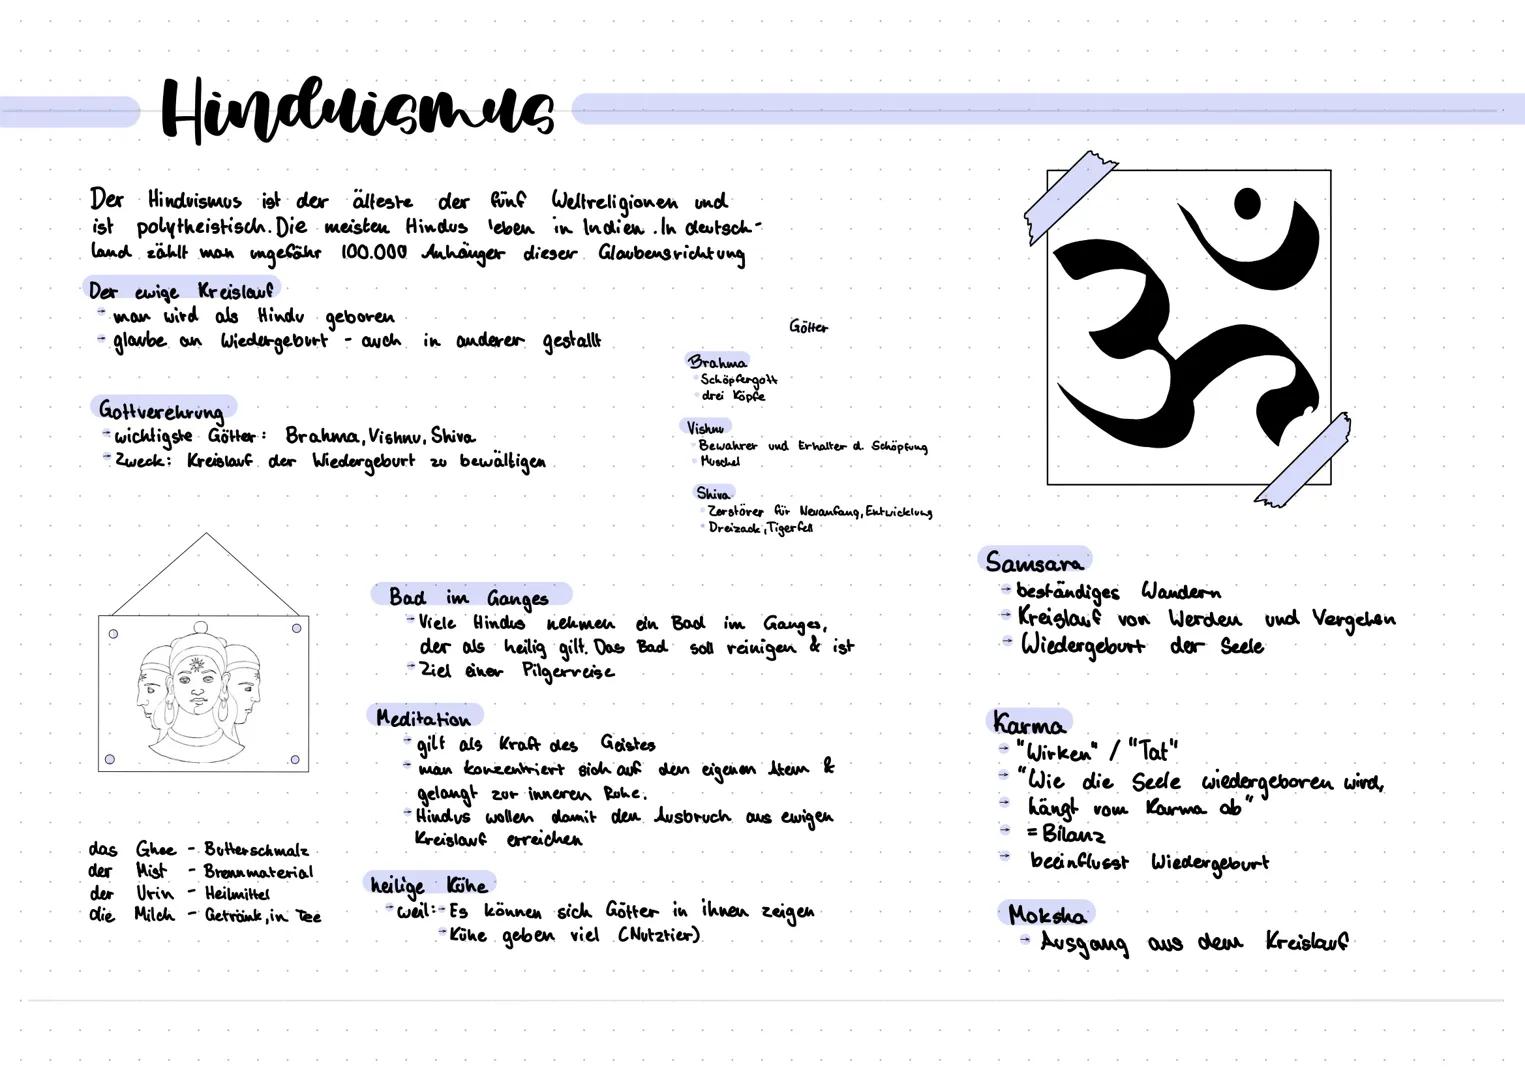 Hinduismus
Der Hinduismus ist der älteste der fünf Weltreligionen und
ist polytheistisch. Die meisten Hindus leben in Indien. In deutsch-
land zählt man ungefähr 100.000 Anhänger dieser Glaubensrichtung
Der ewige Kreislauf
→ man wird als Hindu geboren
→ glaube an Wiedergeburt - auch in anderer gestallt
Gottverehrung
→ wichtigste Götter: Brahma, Vishnu, Shiva
→ Zweck: Kreislauf der Wiedergeburt zu bewältigen
Götter
Brahma
Schöpfergott
drei Köpfe
Vishnu
Bewahrer und Erhalter d. Schöpfung
Muschel
Shiva
Zerstörer für Neuanfang, Entwicklung
Dreizack, Tigerfell
das Ghee - Butterschmalz
der Mist - Brennmaterial
der Urin - Heilmittel
die Milch - Getränk, in Tee
Bad im Ganges
→ Viele Hindus nehmen ein Bad im Ganges,
der als heilig gilt. Das Bad soll reinigen & ist
→ Ziel einer Pilgerreise
Meditation
→ gilt als Kraft des Geistes
→ man konzentriert sich auf den eigenen Atem &
gelangt zur inneren Ruhe.
→ Hindus wollen damit den Ausbruch aus ewigen
Kreislauf erreichen
heilige Kühe
→ weil: - Es können sich Götter in ihnen zeigen
→ Kühe geben viel (Nutztier)
Samsara
→ beständiges Wandern
→ Kreislauf von Werden und Vergehen
→ Wiedergeburt der Seele
Karma
→ "Wirken" / "Tat"
→ "Wie die Seele wiedergeboren wird,
→ hängt vom Karma ab"
→ = Bilanz
→ beeinflusst Wiedergeburt
Moksha
→ Ausgang aus dem Kreislauf